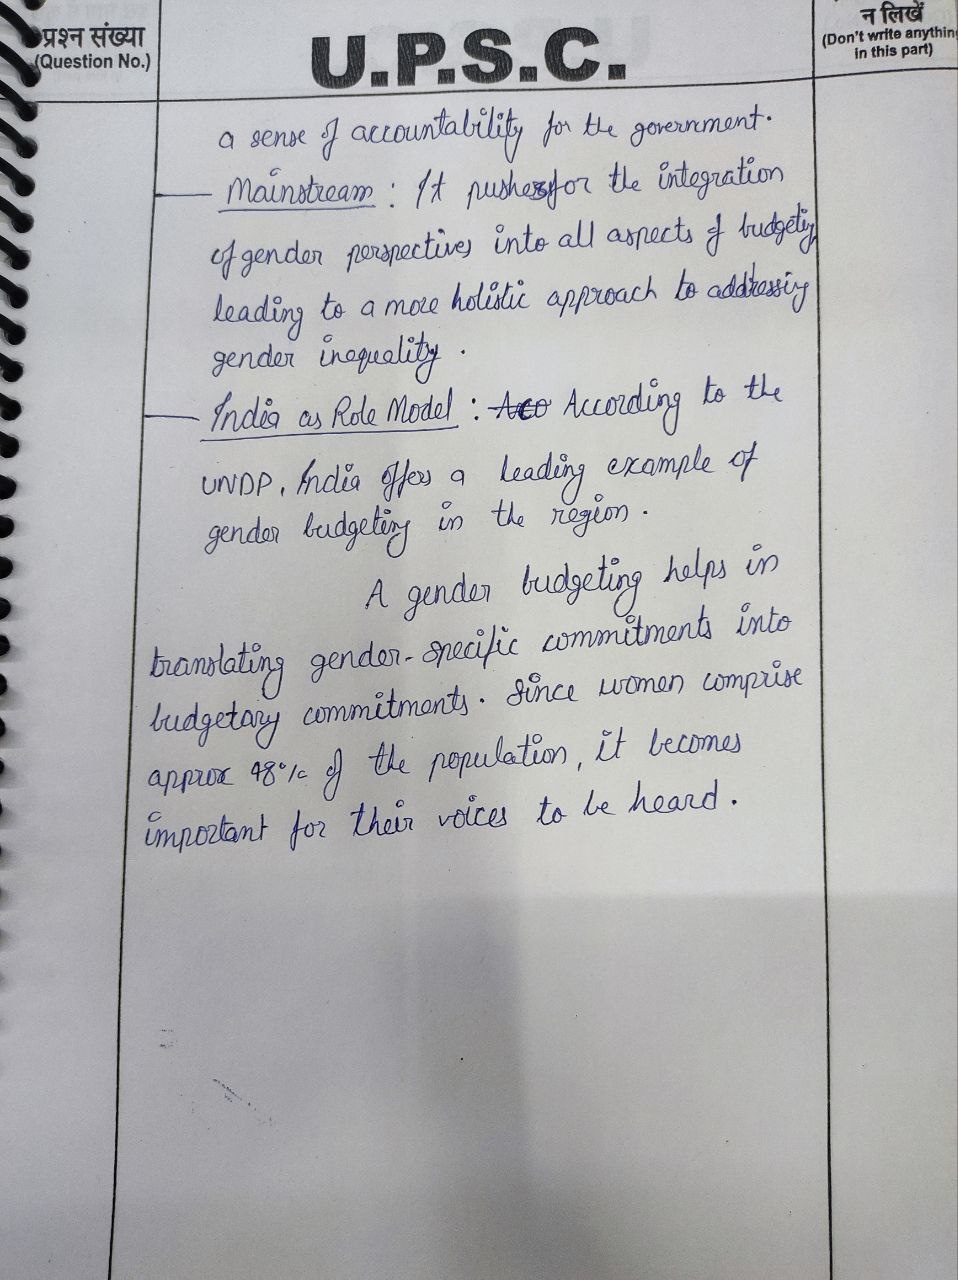 प्रश्न संख्या
(Question No.)
U.P.S.C.
न लिखें
(Don't write anything
in this part)
a sense of accountability for the government.
Mainstream : It pushes for the integration
of gender perspectives into all aspects of budgeting
leading to a more holistic approach to addressing
gender inequality.
India as Role Model : Aco According to the
UNDP, India offers a leading example of
gender budgeting in the region.
A gender budgeting helps in
translating gender-specific commitments into
budgetary commitments. Since women comprise
approx 48% of the population, it becomes
important for their voices to be heard.